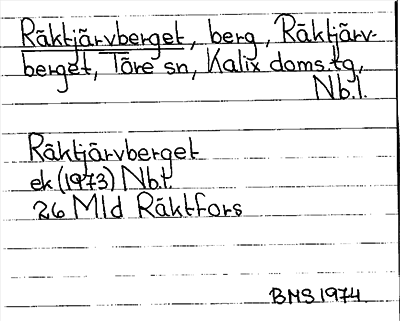 Räktjärvberget, berg, Räktjärv-
berget, Töre sn, Kalix doms.tg,
Nb.l.
Räktjärvberget
ek (1973) Nb.l.
26 Mld Räktfors
BMS 1974